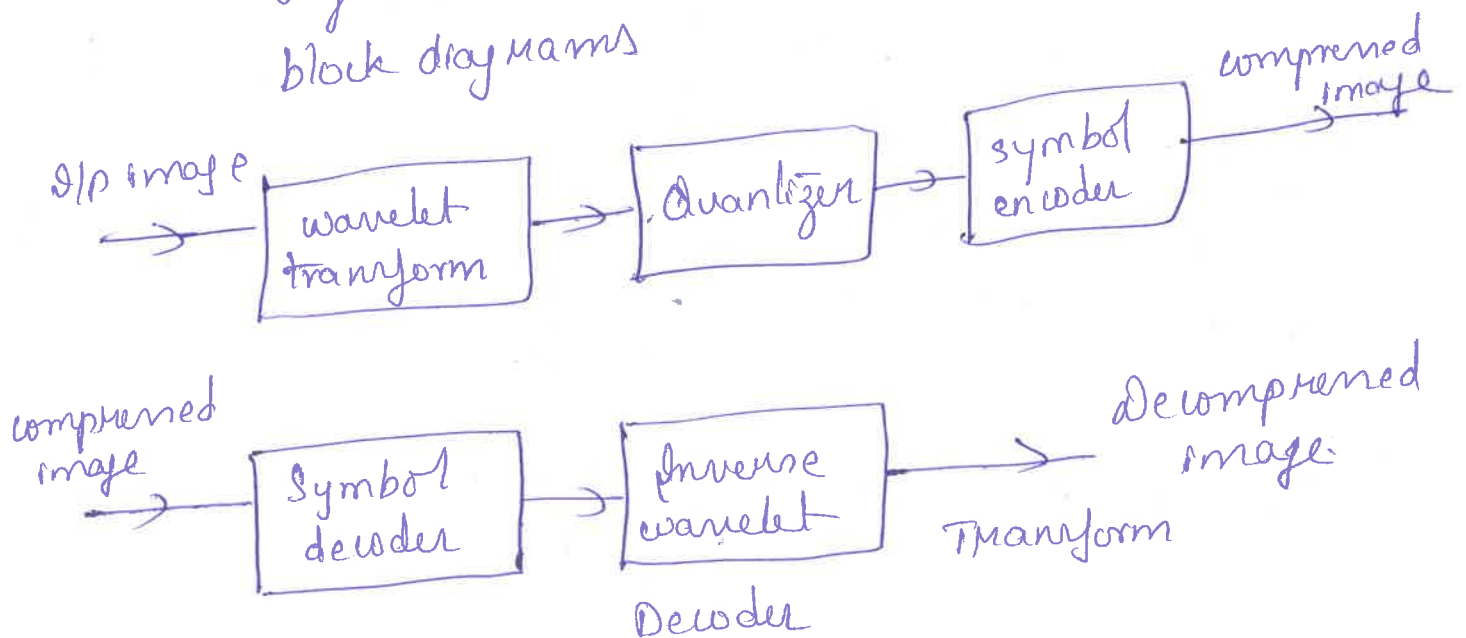 block diagrams
I/p image
wavelet
transform
Quantizer
symbol
encoder
compressed
image
compressed
image
Symbol
decoder
Inverse
wavelet
Decompressed
image.
Transform
Decoder